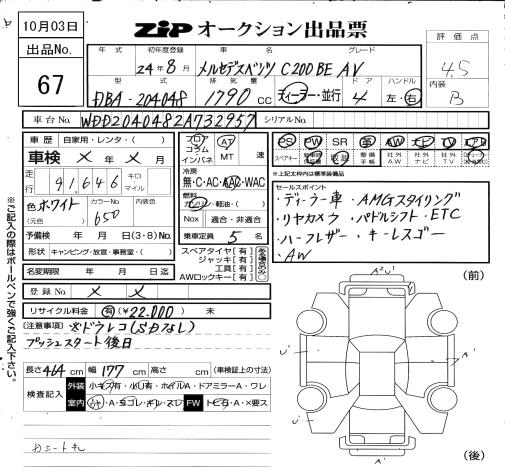 10月03日
ZIP オークション出品票
出品No.
67
年式 初年度登録 車名 グレード
24年8月 メルセデスベンツ C200 BE AV
型式 排気量 ドア ハンドル
DBA-204048 1790 cc ディーラー・並行 4 左・右
評価点
4.5
内装
B
車台No. WDD2040482A732957 シリアルNo.
車歴 自家用・レンタ・( )
車検 × 年 × 月
走行 91,646 キロ マイル
色 ホワイト カラーNo 650 内装色
(元色)
予備検 年 月 日(3・8) No.
形状 キャンピング・放宣・事務室・( )
名変期限 年 月 日迄
登録No. × ×
リサイクル料金 有(¥22,000) 未
フロア コラム インパネ AT MT 速
冷房 無・C・AC・AAC・WAC
燃料 ガソリン・軽油・( )
Nox 適合・非適合
乗車定員 5 名
スペアタイヤ【有】
ジャッキ【有】
工具【有】
AWロックキー【有】
PS PW SR 革 AW ナビ TV エアB
スペアキー 取説 整備手帳 社外AW 社外ナビ
※上記太文字枠は標準装備品
セールスポイント
・ディーラー車 ・AMGスタイリング
・リヤカメラ ・パドルシフト・ETC
・ハーフレザー ・キーレスゴー
・AW
(注意事項) ※ドラレコ(SDなし)
プッシュスタート後日
長さ 464 cm 幅 177 cm 高さ cm (車検証上の寸法)
検査記入 外装 小キズ有・小凹有・ホイルA・ドアミラーA・ワレ
室内 FW トビ石A・×要ス
※ご記入の際はボールペンで強くご記入下さい。
(前)
A2 U'
U'
A'
U'
(後)